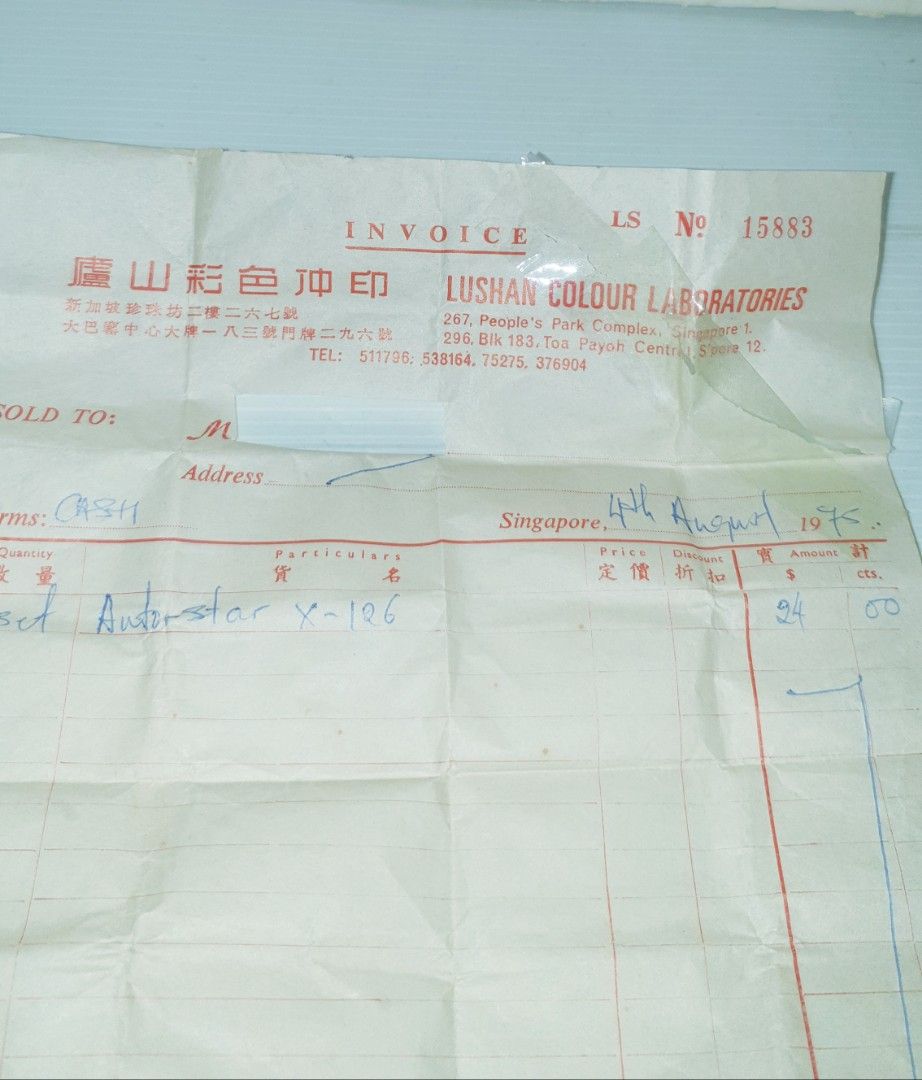 INVOICE
LS Nº 15883
廬山彩色沖印
新加坡珍珠坊二樓二六七號
大巴窰中心大牌一八三號門牌二九六號
LUSHAN COLOUR LABORATORIES
267, People's Park Complex, Singapore 1.
296, Blk 183, Toa Payoh Central, S'pore 12.
TEL: 511796, 538164, 75275, 376904
SOLD TO: M
Address
rms: CASH
Singapore, 4th August 1975
Quantity Particulars Price Discount Amount
數量 貨名 定價 折扣 實計
$ cts.
set Autostar X-126 24 00